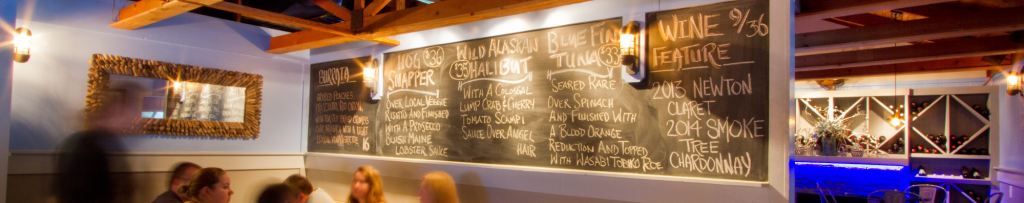 BURRATA
16
HOG 36
SNAPPER
OVER LOCAL VEGGIE
RISOTTO AND FINISHED
WITH A PROSECCO
BLUSH MAINE
LOBSTER SAUCE
WILD ALASKAN
35 HALIBUT
WITH A COLOSSAL
LUMP CRAB & CHERRY
TOMATO SCAMPI
SAUCE OVER ANGEL
HAIR
BLUE FIN
TUNA 33
SEARED RARE
OVER SPINACH
AND FINISHED WITH
A BLOOD ORANGE
REDUCTION AND TOPPED
WITH WASABI TOBIKO ROE
WINE 9/36
FEATURE
2013 NEWTON
CLARET
2014 SMOKE
TREE
CHARDONNAY